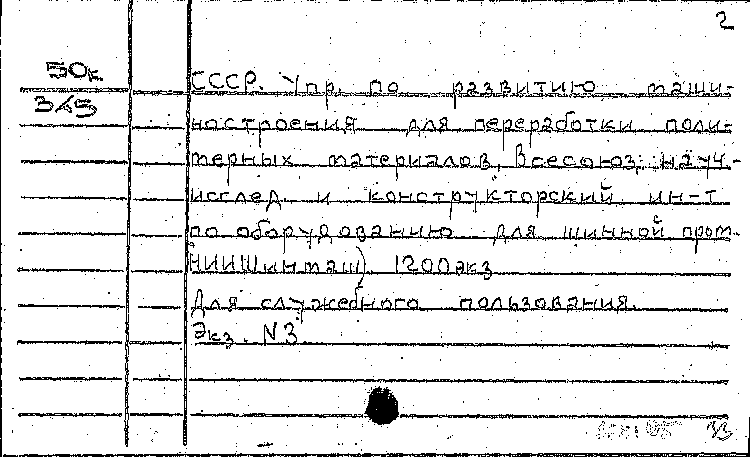 2
50к
345
СССР. Упр. по развитию маши-
ностроения для переработки поли-
мерных материалов, Всесоюз. науч.-
исслед. и конструкторский ин-т
по оборудованию для шинной пром.
НИИШинмаш). 1200 экз
Для служебного пользования.
Экз. N3
33